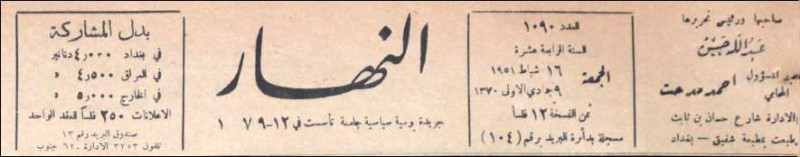 صاحبها ورئيس تحريرها
عبد الله حسن
المدير المسؤول
المحامي
احمد مدحت
الادارة شارع حسان بن ثابت
طبعت بمطبعة شفيق - بغداد
العدد ١٠٩٠
السنة الرابعة عشرة
الجمعة
١٦ شباط ١٩٥١
٩ جمادي الاولى ١٣٧٠
ثمن النسخة ١٢ فلساً
مسجلة بدائرة البريد برقم (١٠٤)
النهار
جريدة يومية سياسية جامعة تأسست في ١٢-٩-٧ ١
بدل المشاركة
في بغداد ٤٫٠٠٠ دنانير
في العراق ٤٫٥٠٠ »
في الخارج ٥٫٠٠٠ »
الاعلانات ٢٥٠ فلساً للعقد الواحد
صندوق البريد رقم ١٣
تلفون ٣٢٥٣ الادارة ٦٢٠ جنوب